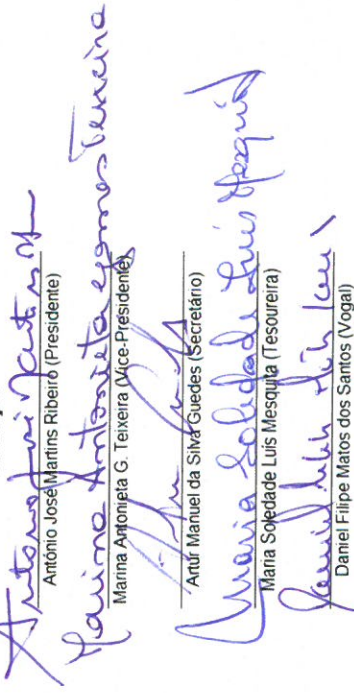 António José Martins Ribeiro (Presidente)
Marina Antonieta Gomes Teixeira
Marina Antonieta G. Teixeira (Vice-Presidente)
Artur Manuel da Silva Guedes (Secretário)
Maria Soledade Luís Mesquita
Maria Soledade Luis Mesquita (Tesoureira)
Daniel Filipe Matos dos Santos (Vogal)